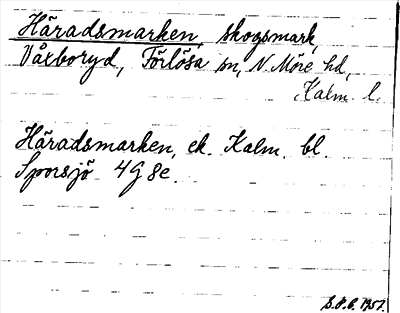 Häradsmarken, skogsmark,
Våxboryd, Förlösa sn, N. Möre hd,
Kalm. l.
Häradsmarken, ek. Kalm. bl.
Sporsjö 4G 8e.
1951.